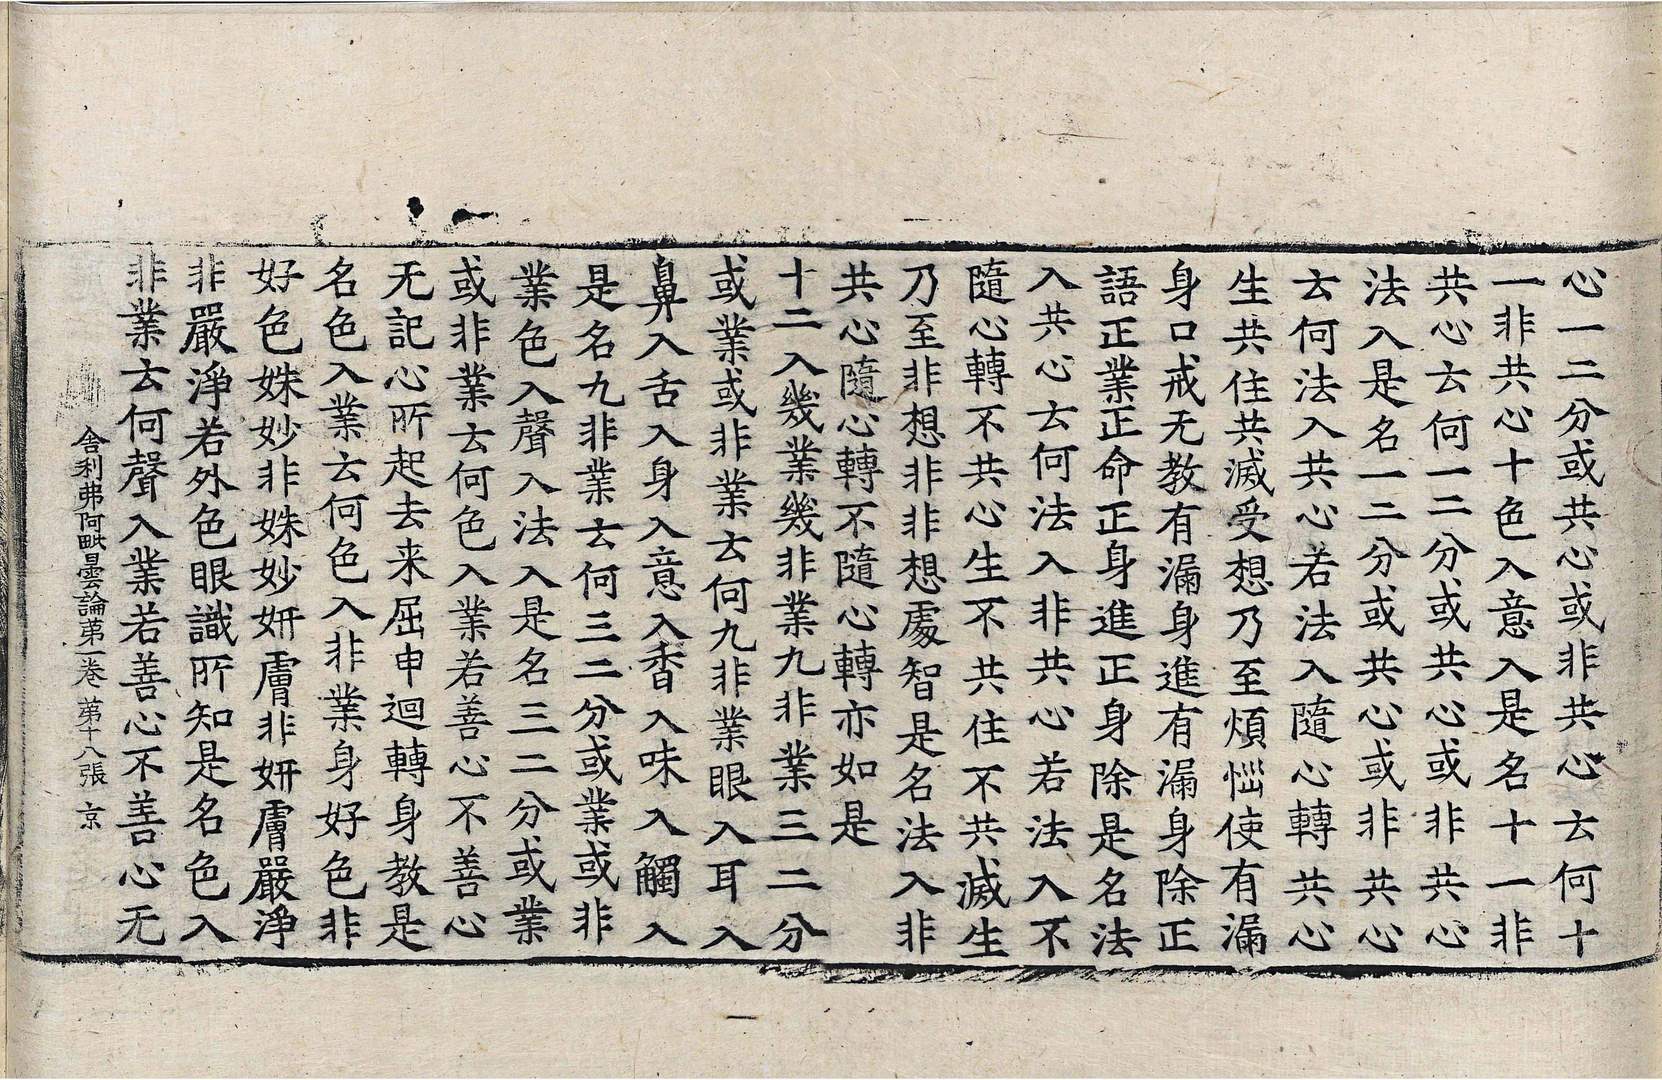 心一二分或共心或非共心去何十
一非共心十色入意入是名十一非
共心去何一二分或共心或非共心
法入是名一二分或共心或非共心
去何法入共心若法入隨心轉共心
生共住共滅受想乃至煩惱使有漏
身口戒无教有漏身進有漏身除正
語正業正命正身進正身除是名法
入共心去何法入非共心若法入不
隨心轉不共心生不共住不共滅生
乃至非想非非想處智是名法入非
共心隨心轉不隨心轉亦如是
十二入幾業幾非業九非業三二分
或業或非業去何九非業眼入耳入
鼻入舌入身入意入香入味入觸入
是名九非業去何三二分或業或非
業色入聲入法入是名三二分或業
或非業去何色入業若善心不善心
无記心所起去来屈申迴轉身教是
名色入業去何色入非業身好色非
好色姝妙非姝妙妍膚非妍膚嚴淨
非嚴淨若外色眼識所知是名色入
非業去何聲入業若善心不善心无
舍利弗阿毗曇論苐一卷 苐十八張 京